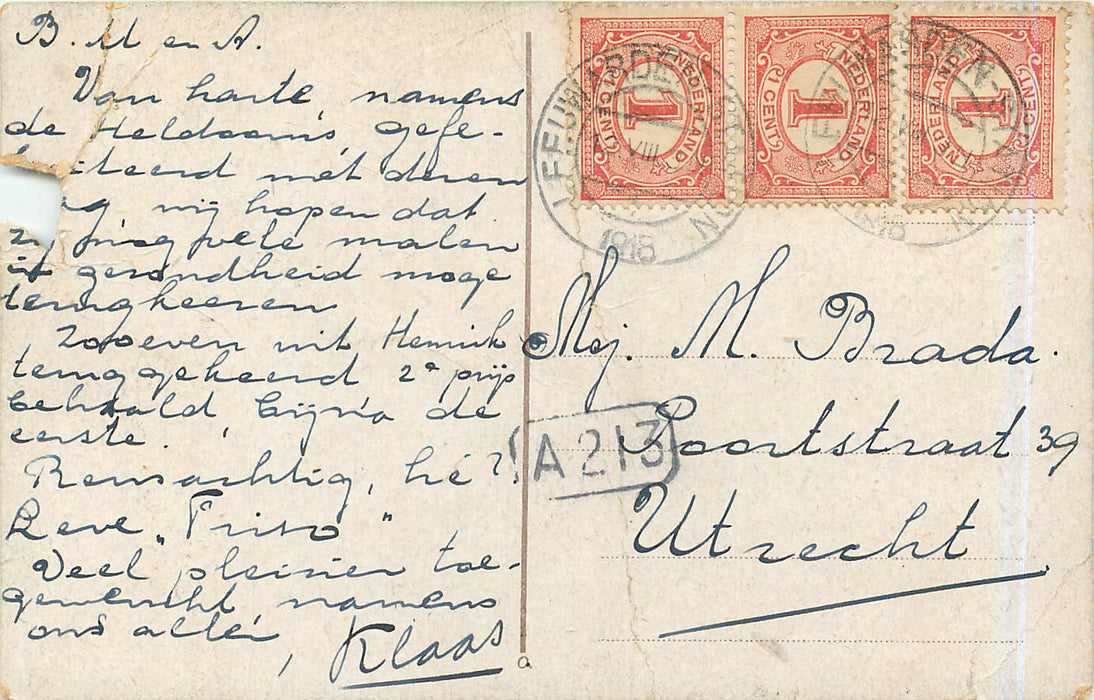 B. M en A.
Van harte, namens
de Heldoorns, gefe-
iteerd met deren
ag, wij hopen dat
zij nog vele malen
in gezondheid moge
terugkeeren
Zooeven uit Hemrik
teruggekeerd 2e prijs
behaald, bijna de
eerste.
Reusachtig, hé?
Leve „Friso"
Veel plezier toe-
gewenscht, namens
ons allen,
Klaas
NEDERLAND
1
1 CENT
NEDERLAND
1
1 CENT
NEDERLAND
1
1 CENT
LEEUWARDEN STATION
VIII
1918
LEEUWARDEN STATION
Mej. M. Brada.
A 213
Poortstraat 39
Utrecht
a